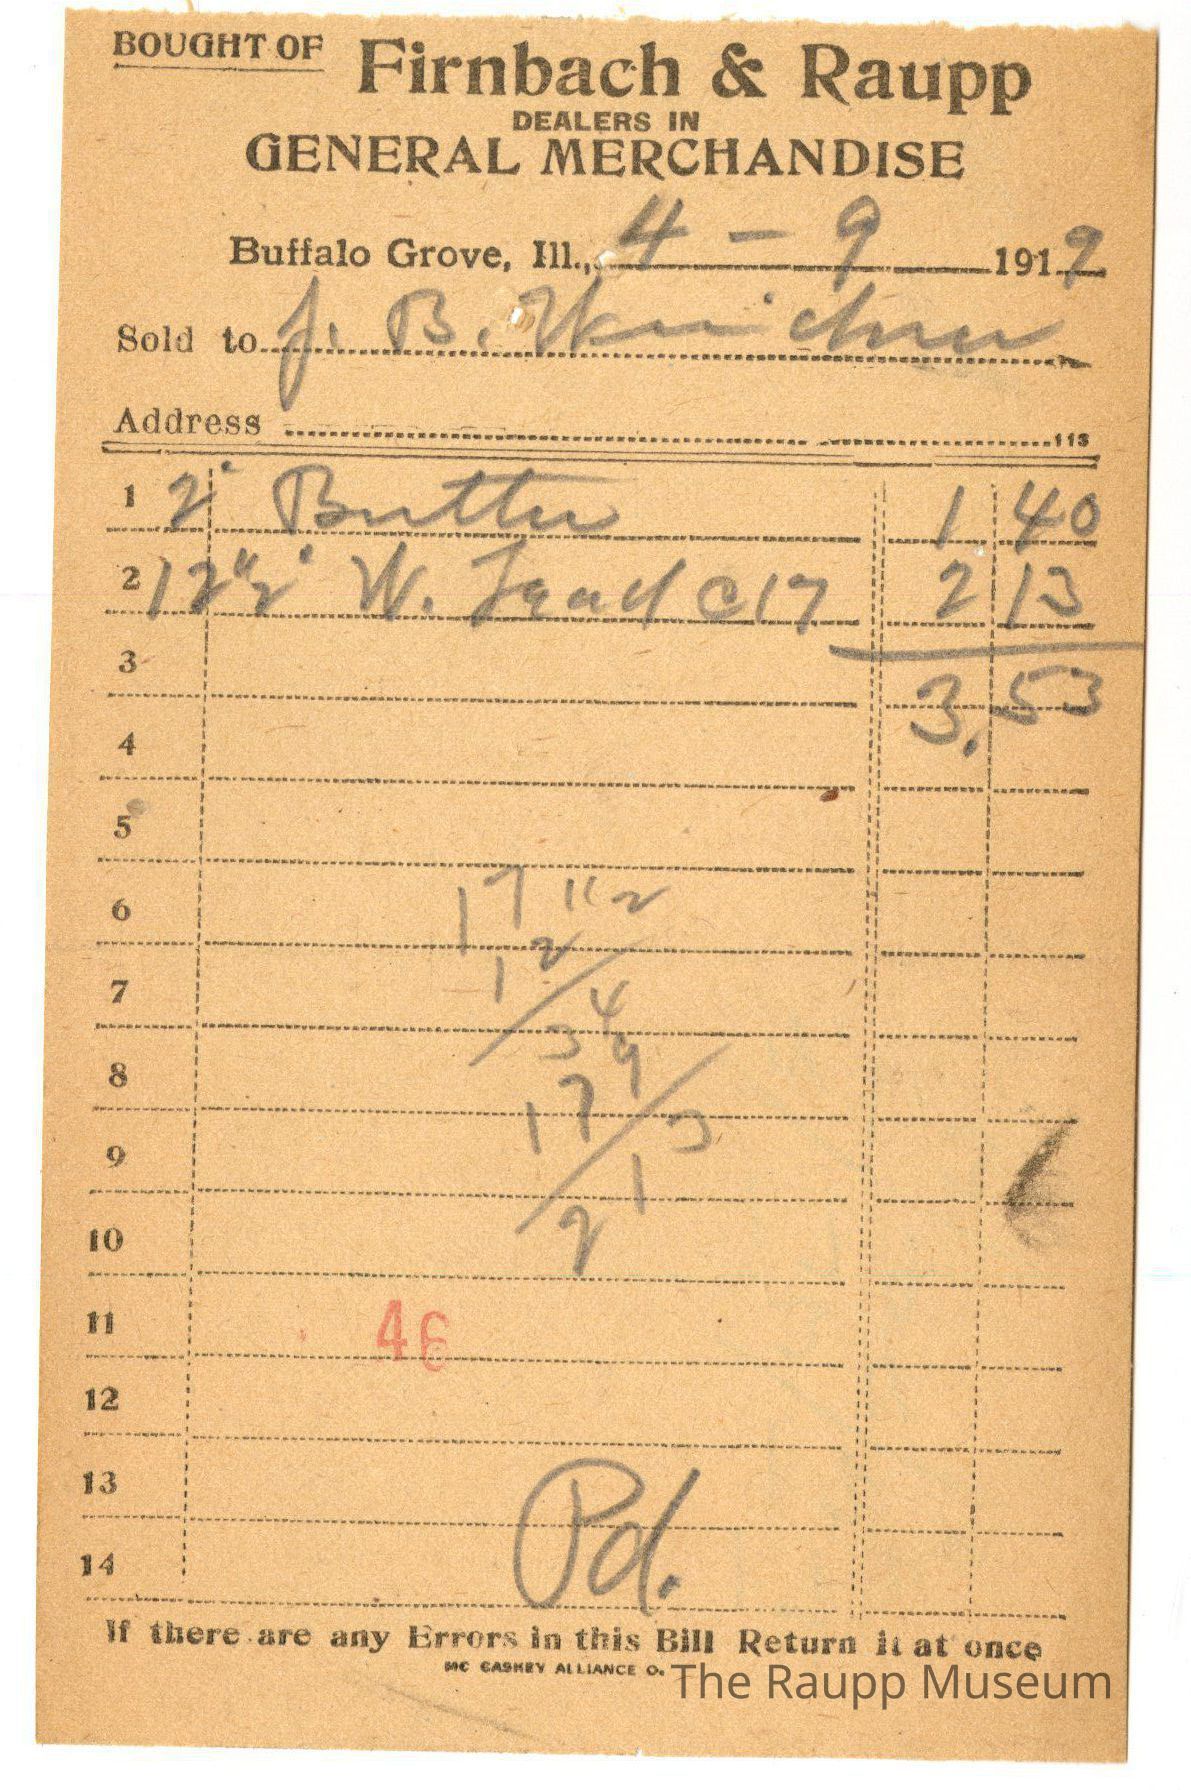 BOUGHT OF Firnbach & Raupp
DEALERS IN
GENERAL MERCHANDISE
Buffalo Grove, Ill., 4 - 9 1919
Sold to J. B.
Address 113
1 2 Butter 1 40
2 12 1/2 W. Lead @ 17 2 13
3 3.53
4
5
6 17 1/2
7 12
34
8 9
17
9 3
1
10 2
11 46
12
13
Pd.
14
If there are any Errors in this Bill Return it at once
MC CASKEY ALLIANCE O.
The Raupp Museum